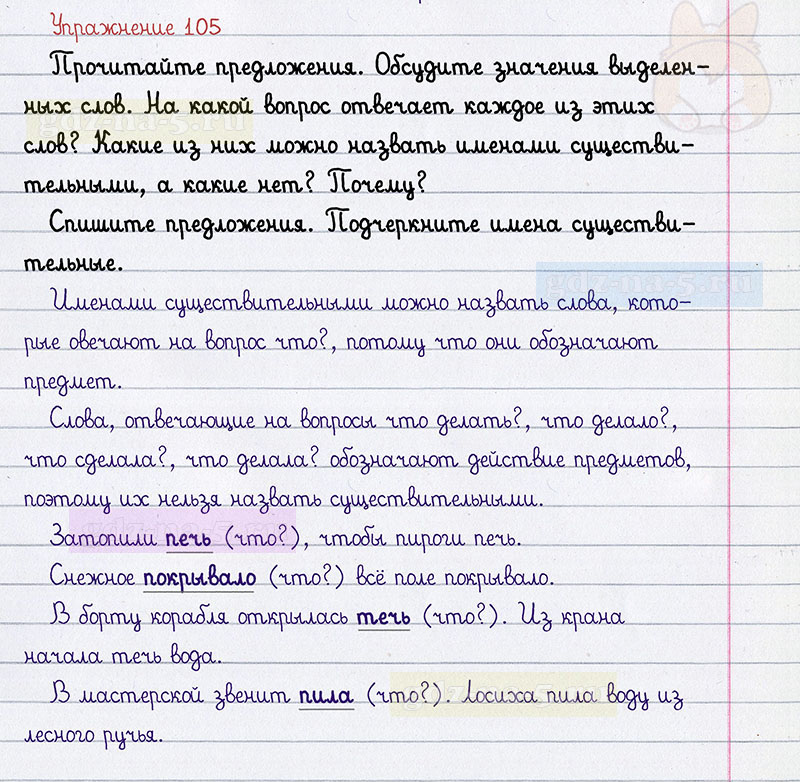 Упражнение 105
Прочитайте предложения. Обсудите значения выделен-
ных слов. На какой вопрос отвечает каждое из этих
слов? Какие из них можно назвать именами существи-
тельными, а какие нет? Почему?
Спишите предложения. Подчеркните имена существи-
тельные.
gdz-na-5.ru
Именами существительными можно назвать слова, кото-
рые овечают на вопрос что?, потому что они обозначают
предмет.
Слова, отвечающие на вопросы что делать?, что делало?,
что сделала?, что делала? обозначают действие предметов,
поэтому их нельзя назвать существительными.
Затопили печь (что?), чтобы пироги печь.
Снежное покрывало (что?) всё поле покрывало.
В борту корабля открылась течь (что?). Из крана
начала течь вода.
В мастерской звенит пила (что?). Лосиха пила воду из
лесного ручья.